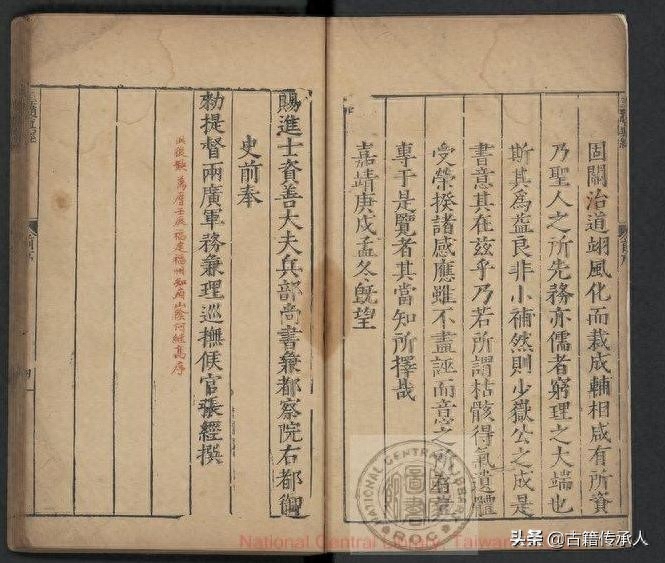 固關治道翊風化而裁成輔相咸有所資
乃聖人之所先務亦儒者窮理之大端也
斯其為益良非小補然則少嶽公之成是
書意其在茲乎乃若所謂枯骸得氣遺體
受榮揆諸感應雖不盡誣而音
專于是覽者其當知所擇哉
嘉靖庚戌孟冬旣望
賜進士資善大夫兵部尚書兼都察院右都御
史前奉
勑提督兩廣軍務兼理巡撫候官張經撰
萬曆壬 福建福州知府山陰何繼高序
NATIONAL CENTRAL LIBRARY
R.O.C.
National Central Library, Taiwan
头条 @古籍传承人